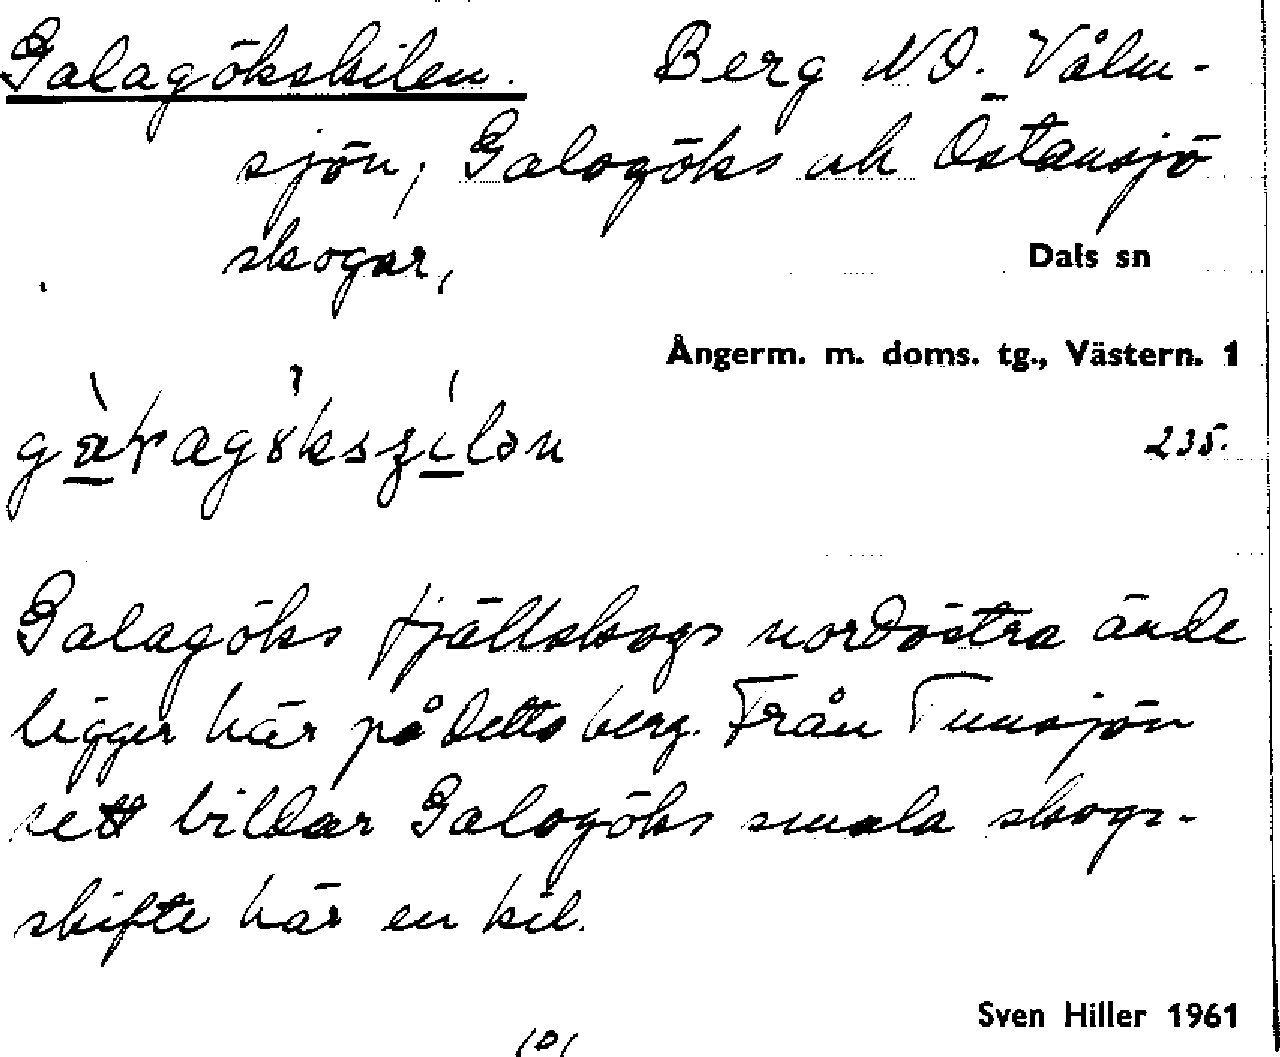 Galagökskilen. Berg NO. Vålm-
sjön, Galagöks och Östansjö
skogar,
Dals sn
Ångerm. m. doms. tg., Västern. 1
235.
Galagöks fjällskogs nordöstra ände
ligger här på detta berg. Från Tunsjön
sett bildar Galagöks smala skogs-
skifte här en kil.
Sven Hiller 1961